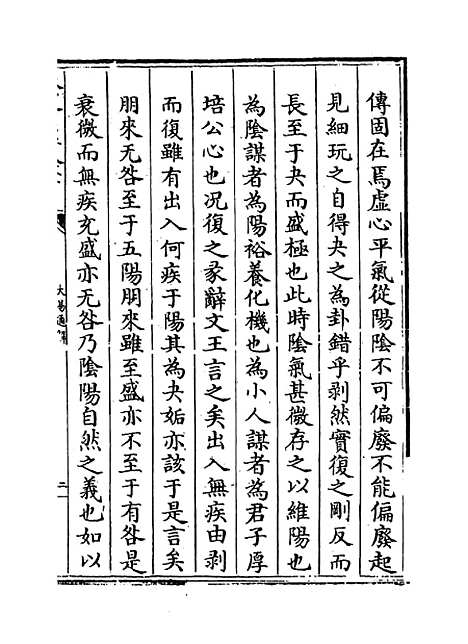 傳固在焉虛心平氣從陽陰不可偏廢不能偏廢起
見細玩之自得夬之為卦錯乎剥然實復之剛反而
長至于夬而盛極也此時陰氣甚微存之以維陽也
為陰謀者為陽裕養化機也為小人謀者為君子厚
培公心也况復之彖辭文王言之矣出入無疾由剥
而復雖有出入何疾于陽其為夬姤亦該于是言矣
朋來无咎至于五陽朋來雖至盛亦不至于有咎是
衰微而無疾充盛亦无咎乃陰陽自然之義也如以
大易通解